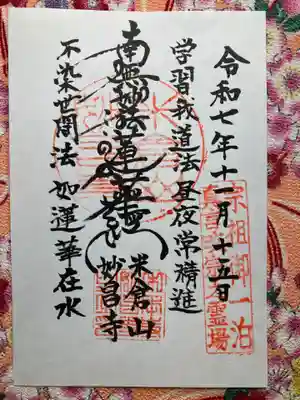 令和七年十一月十五日
学習我道法 昼夜常精進
南無妙法蓮華経
不染世間法 如蓮華在水
米倉山
妙昌寺
宗祖御一泊
霊場